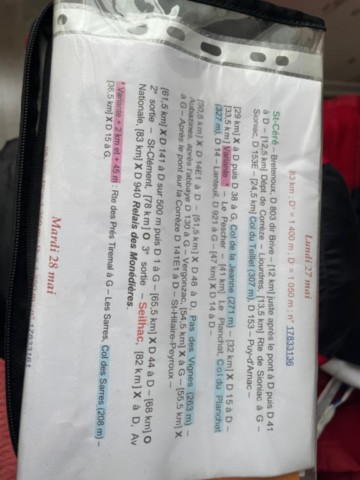 Lundi 27 mai
83 km ; D⁺ = 1 400 m ; D⁻ = 1 050 m ; n° 17833136
St-Céré – Bretenoux, D 803 dir Brive – [12 km] juste après le pont à D puis D 41
à D – [12,5 km] Dépt de Corrèze – Liourdres, [13,5 km] Rte de Sioniac à G –
Sioniac, D 153E – [24,5 km] Col du Teillet (307 m), D 153 – Puy-d'Arnac –
[29 km] X à D puis D 38 à G, Col de la Jeanne (271 m) – [32 km] X D 15 à D –
[33,5 km] Variante * – Le Pescher – [41 km] Le Planchat, Col du Planchat
(327 m), D 14 – Lanteuil, D 921 à G – [47 km] X D 14 à D –
[50,8 km] X D 14E1 à D – [51,5 km] X D 48 à D, Pas des Vignes (263 m) –
Aubazines, après l'abbaye D 130 à G – Vergonzac, [54,5 km] X à G – [55,5 km] X
à G – Après le pont sur la Corrèze D 141E1 à D – St-Hilaire-Peyroux –
[61,5 km] X D 141 à D sur 500 m puis D 1 à G – [65,5 km] X D 44 à D – [68 km] O
2e sortie – St-Clément, [78 km] O 3e sortie – Seilhac, [82 km] X à D, Av
Nationale, [83 km] X D 940 Relais des Monédières.
* Variante + 2 km et + 45 m : Rte des Prés Tremal à G – Les Sarres, Col des Sarres (208 m) –
[36,5 km] X D 15 à G.
Mardi 28 mai